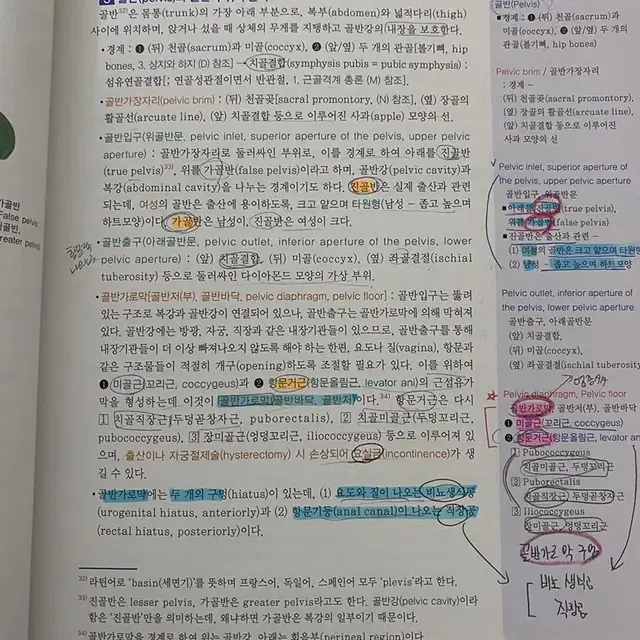 골반³²⁾은 몸통(trunk)의 가장 아래 부분으로, 복부(abdomen)와 넓적다리(thigh)
사이에 위치하며, 앉거나 섰을 때 상체의 무게를 지탱하고 골반강의 내장을 보호한다.
• 경계 : ❶ (뒤) 천골(sacrum)과 미골(coccyx), ❷ (앞/옆) 두 개의 관골[볼기뼈, hip
bones, 3. 상지와 하지 (D) 참조] → 치골결합(symphysis pubis = pubic symphysis) :
섬유연골결합[: 연골성관절이면서 반관절, 1. 근골격계 총론 (M) 참조].
• 골반가장자리(pelvic brim) : (뒤) 천골곶[sacral promontory, (N) 참조], (옆) 장골의
활꼴선(arcuate line), (앞) 치골결합 등으로 이루어진 사과(apple) 모양의 선.
• 골반입구(위골반문, pelvic inlet, superior aperture of the pelvis, upper pelvic
aperture) : 골반가장자리로 둘러싸인 부위로, 이를 경계로 하여 아래를 진골반
(true pelvis)³³⁾, 위를 가골반(false pelvis)이라고 하며, 골반강(pelvic cavity)과
복강(abdominal cavity)을 나누는 경계이기도 하다. 진골반은 실제 출산과 관련
되는데, 여성의 골반은 출산에 용이하도록, 크고 얕으며 타원형(남성 – 좁고 높으며
하트모양)이다. 가골반은 남성이, 진골반은 여성이 크다.
• 골반출구(아래골반문, pelvic outlet, inferior aperture of the pelvis, lower
pelvic aperture) : (앞) 치골결합, (뒤) 미골(coccyx), (옆) 좌골결절(ischial
tuberosity) 등으로 둘러싸인 다이아몬드 모양의 가상 부위.
• 골반가로막[골반저(부), 골반바닥, pelvic diaphragm, pelvic floor] : 골반입구는 뚫려
있는 구조로 복강과 골반강이 연결되어 있으나, 골반출구는 골반가로막에 의해 막혀져
있다. 골반강에는 방광, 자궁, 직장과 같은 내장기관들이 있으므로, 골반출구를 통해
내장기관들이 더 이상 빠져나오지 않도록 해야 하는 한편, 요도나 질(vagina), 항문과
같은 구조물들이 적절히 개구(opening)하도록 조절할 필요가 있다. 이를 위하여
❶ 미골근(꼬리근, coccygeus)과 ❷ 항문거근(항문올림근, levator ani)의 근섬유가
막을 형성하는데, 이것이 골반가로막(골반바닥, 골반저)이다.³⁴⁾ 항문거근은 다시
1 치골직장근(두덩곧창자근, puborectalis), 2 치골미골근(두덩꼬리근,
pubococcygeus), 3 장미골근(엉덩꼬리근, iliococcygeus) 등으로 이루어져 있
으며, 출산이나 자궁절제술(hysterectomy) 시 손상되어 요실금(incontinence)가 생
길 수 있다.
• 골반가로막에는 두 개의 구멍(hiatus)이 있는데, (1) 요도와 질이 나오는 비뇨생식공
(urogenital hiatus, anteriorly)과 (2) 항문기둥(anal canal)이 나오는 직장공
(rectal hiatus, posteriorly)이다.
³²⁾ 라틴어로 ‘basin(세면기)’를 뜻하며 프랑스어, 독일어, 스페인어 모두 ‘plevis’라고 한다.
³³⁾ 진골반은 lesser pelvis, 가골반은 greater pelvis라고도 한다. 골반강(pelvic cavity)이라
함은 ‘진골반’만을 의미하는데, 왜냐하면 가골반은 복강의 일부이기 때문이다.
³⁴⁾ 골반가로막을 경계로 하여 위는 골반강, 아래는 회음부(perineal region)이다
골반(Pelvis)
■ 경계 : ❶ (뒤) 천골(sacrum)과
미골(coccyx), ❷ (앞/옆) 두 개의
관골(볼기뼈, hip bones)
Pelvic brim / 골반가장자리
: 경계 –
(뒤) 천골곶(sacral promontory),
(옆) 장골의 활꼴선(arcuate line),
(앞) 치골결합 등으로 이루어진
사과 모양의 선
Pelvic inlet, superior aperture of
the pelvis, upper pelvic aperture
골반입구, 위골반문
■ 아래를 진골반(true pelvis),
위를 가골반(false pelvis)
■ 진골반은 출산과 관련 –
(1) 여성의 골반은 크고 얕으며 타원형
(2) 남성 – 좁고 높으며 하트모양
Pelvic outlet, inferior aperture of
the pelvis, lower pelvic aperture
골반출구, 아래골반문
(앞) 치골결합,
(뒤) 미골(coccyx),
(옆) 좌골결절(ischial tuberosity)
Pelvic diaphragm, Pelvic floor
골반가로막, 골반저(부), 골반바닥
❶ 미골근(꼬리근, coccygeus)
❷ 항문거근(항문올림근, levator ani)
1 Pubococcygeus
치골미골근, 두덩꼬리근
2 Puborectalis
치골직장근, 두덩곧창자근
3 Iliococcygeus
장미골근, 엉덩꼬리근
골반가로막 구멍
비뇨 생식공
직장공
False pelvis
골반,